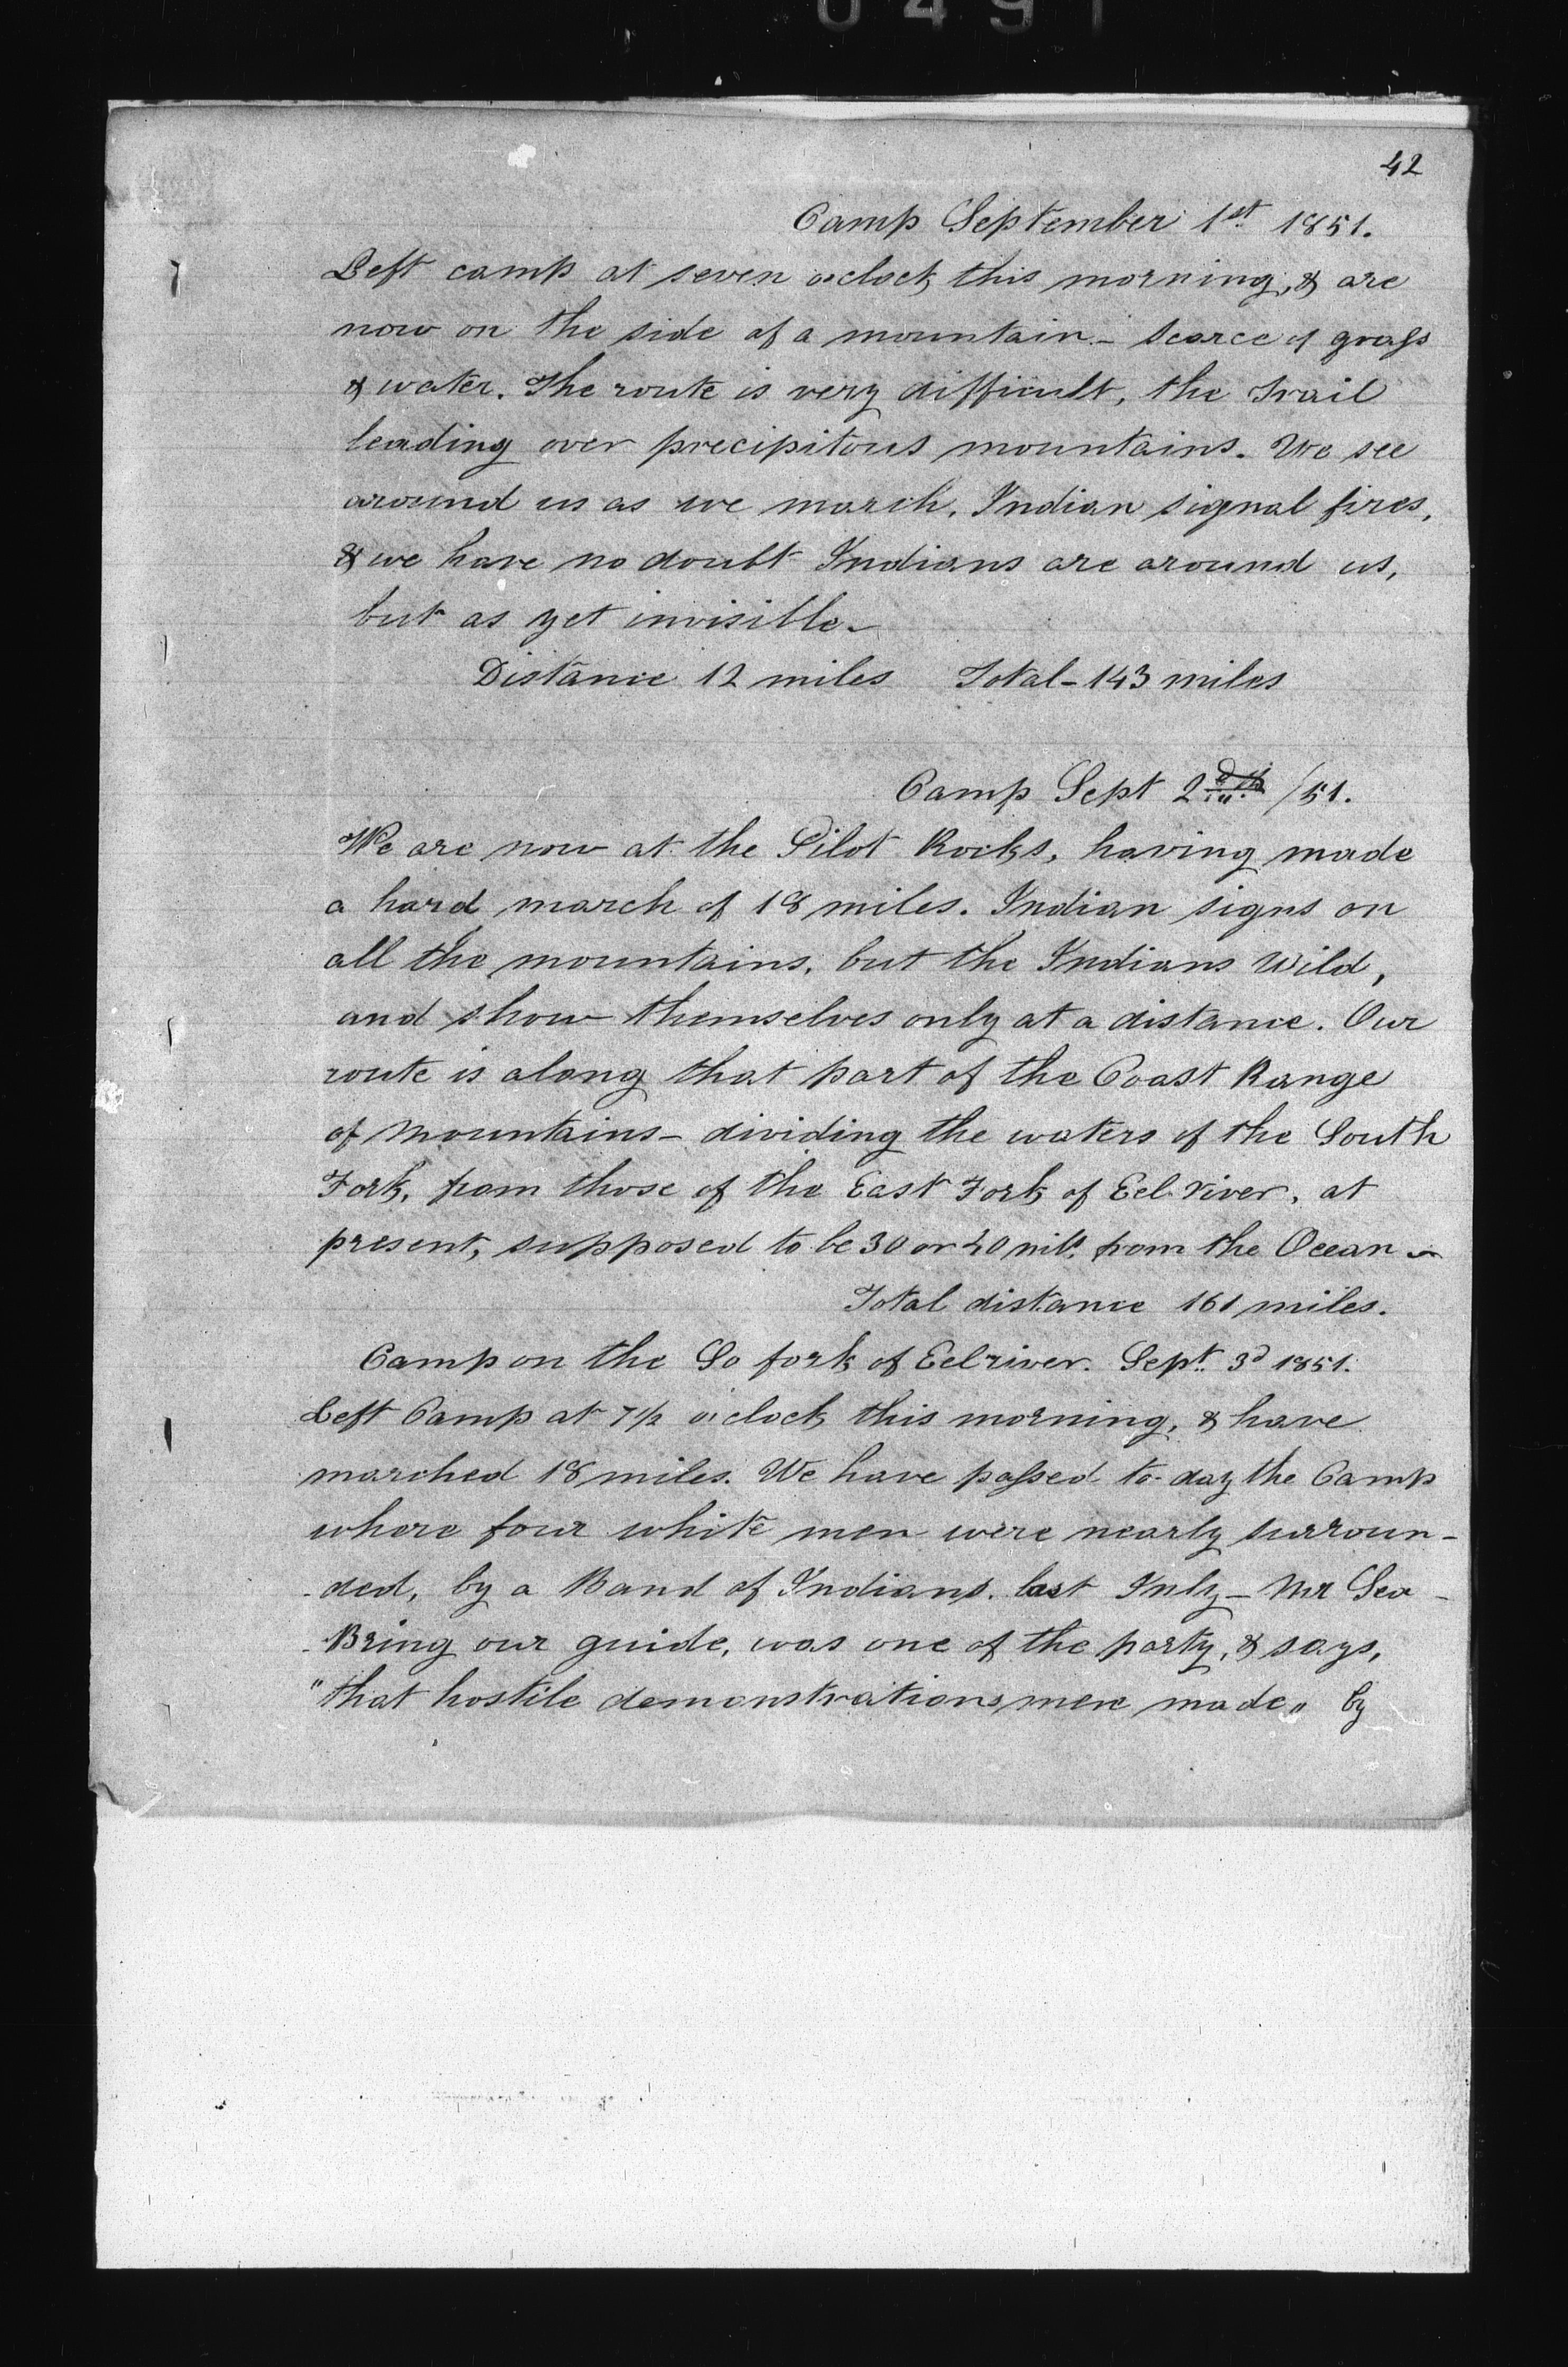 0491
42
Camp September 1st 1851.
Left camp at seven o'clock this morning, & are
now on the side of a mountain - scarce of grass
& water. The route is very difficult, the Trail
leading over precipitous mountains. We see
around us as we march, Indian signal fires,
& we have no doubt Indians are around us,
but as yet invisible -
Distance 12 miles Total - 143 miles
Camp Sept 2d /51.
We are now at the Pilot Rocks, having made
a hard march of 18 miles. Indian signs on
all the mountains, but the Indians Wild,
and show themselves only at a distance. Our
route is along that part of the Coast Range
of Mountains - dividing the waters of the South
Fork, from those of the East Fork of Eel River, at
present, supposed to be 30 or 40 mils. from the Ocean -
Total distance 161 miles.
Camp on the So fork of Eel river. Sept. 3d 1851.
Left Camp at 7½ o'clock this morning, & have
marched 18 miles. We have passed to-day the Camp
where four white men were nearly surroun-
-ded, by a Band of Indians. last July - Mr Sea -
-Bring our guide, was one of the party, & says,
"that hostile demonstrations were made" by